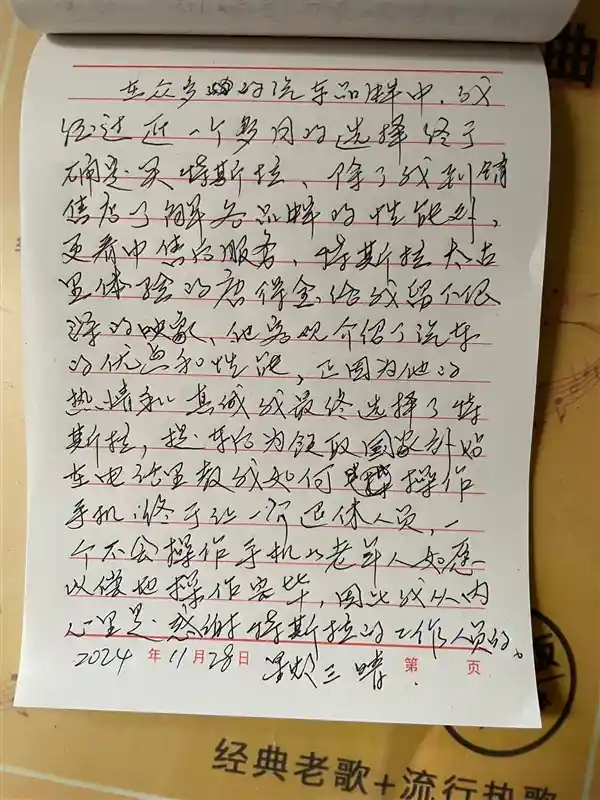 在众多的汽车品牌中，我
经过近一个多月的选择终于
确定买特斯拉、除了我到销
售店了解各品牌的性能外，
更看中售后服务、特斯拉太古
里体验的唐得金给我留个很
深的映象、他客观介绍了汽车
的优点和性能，正因为他的
热情和真诚我最终选择了特
斯拉，提车后为领取国家补贴
在电话里教我如何操作
手机；终于让一位退休人员，一
个不会操作手机的老年人如愿
以偿地操作完毕，因此我从内
心里是感谢特斯拉的工作人员的。
2024年11月28日 三 第 页
经典老歌+流行热歌
曲
版